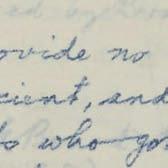 ovide no
cient, and
who go